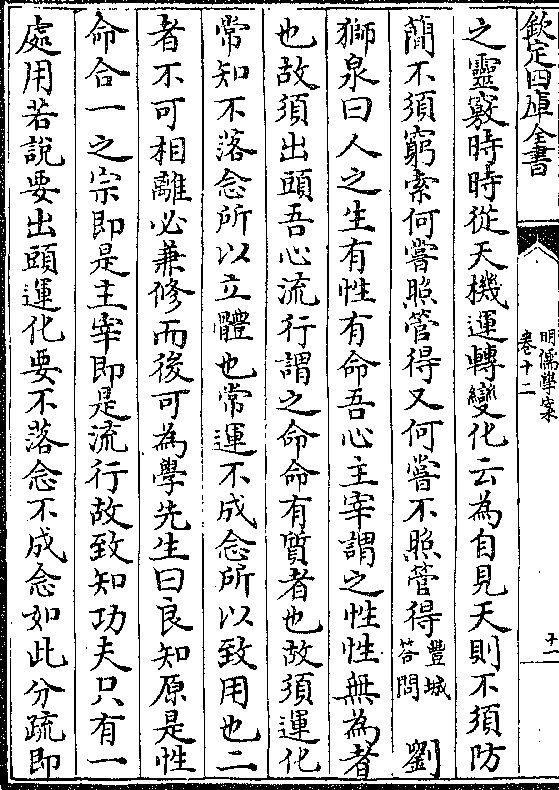 欽定四庫全書
明儒學案
卷十二
十一
之靈竅時時從天機運轉變化云為自見天則不須防
簡不須窮索何嘗照管得又何嘗不照管得豐城答問 劉
獅泉曰人之生有性有命吾心主宰謂之性性無為者
也故須出頭吾心流行謂之命命有質者也故須運化
常知不落念所以立體也常運不成念所以致用也二
者不可相離必兼修而後可為學先生曰良知原是性
命合一之宗即是主宰即是流行故致知功夫只有一
處用若說要出頭運化要不落念不成念如此分疏即